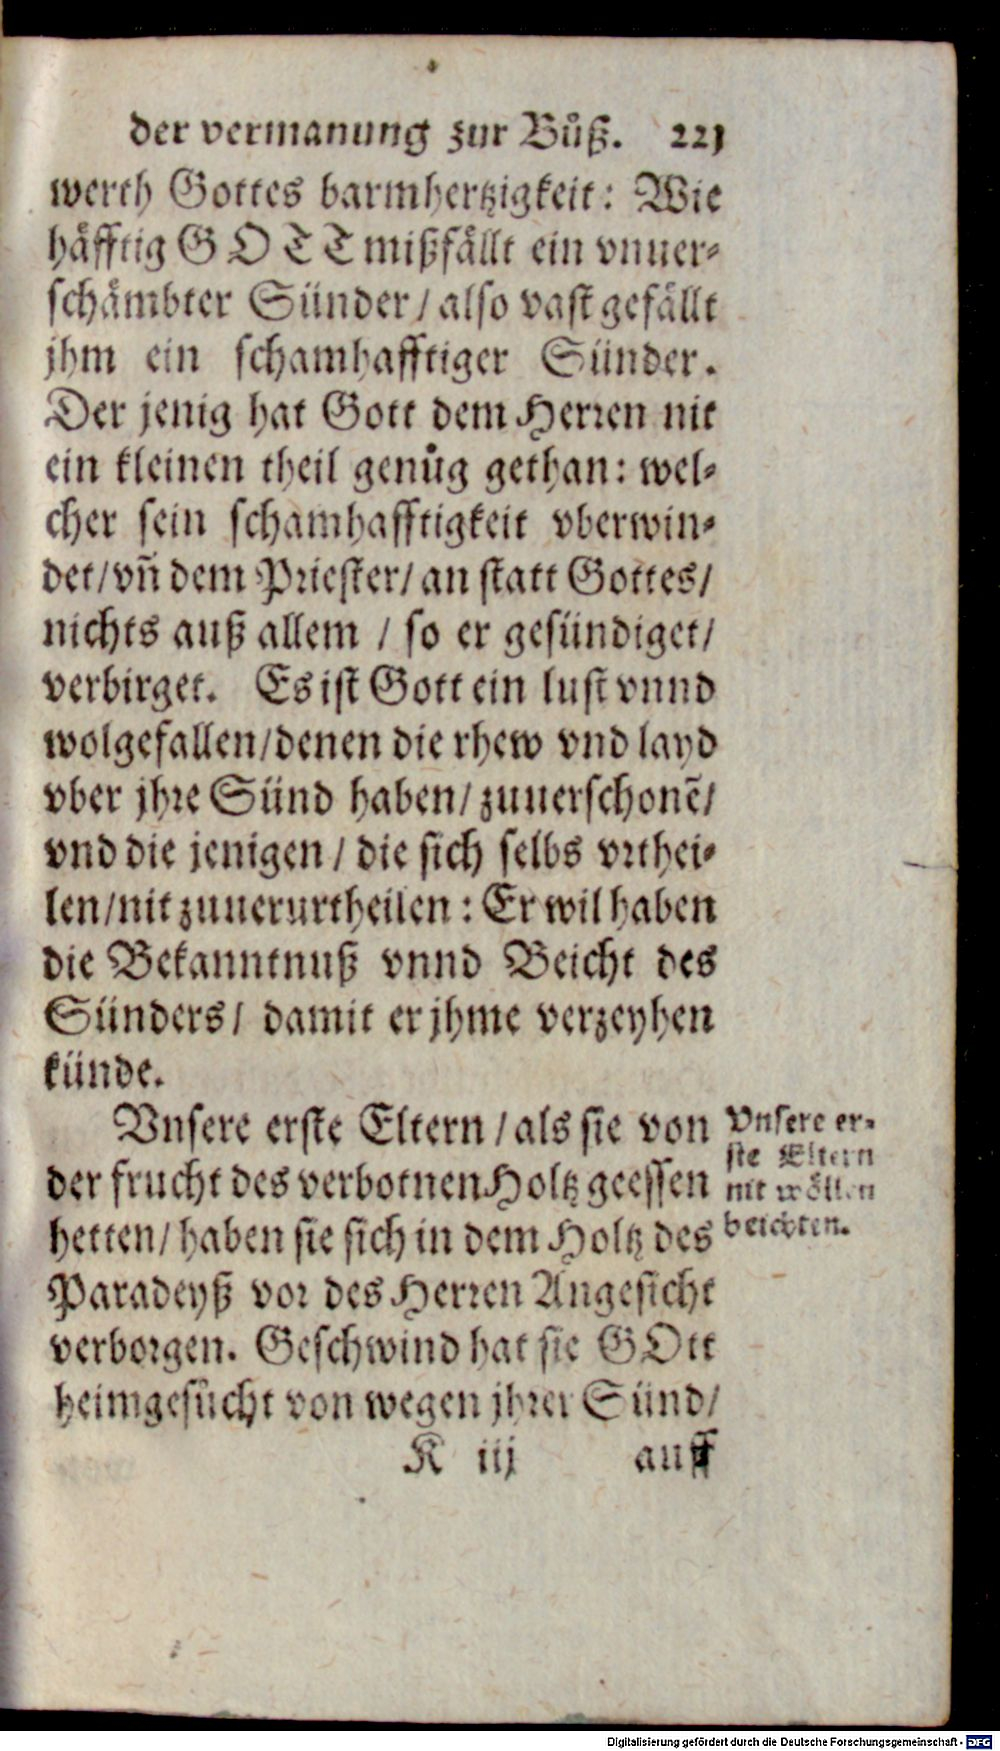 der vermanung zur Bůß. 221
werth Gottes barmhertzigkeit: Wie
häfftig GOTT mißfällt ein vnuer-
schämbter Sünder / also vast gefällt
jhm ein schamhafftiger Sünder.
Der jenig hat Gott dem Herren nit
ein kleinen theil genůg gethan: wel-
cher sein schamhafftigkeit vberwin-
det / vñ dem Priester / an statt Gottes /
nichts auß allem / so er gesündiget /
verbirget. Es ist Gott ein lust vnnd
wolgefallen / denen die rhew vnd layd
vber jhre Sünd haben / zuuerschonẽ /
vnd die jenigen / die sich selbs vrthei-
len / nit zuuerurtheilen : Er wil haben
die Bekanntnuß vnnd Beicht des
Sünders / damit er jhme verzeyhen
künde.
Vnsere erste Eltern / als sie von
der frucht des verbotnen Holtz geessen
hetten / haben sie sich in dem Holtz des
Paradeyß vor des Herren Angesicht
verborgen. Geschwind hat sie GOtt
heimgesůcht von wegen jhrer Sünd /
Vnsere er-
ste Eltern
nit wöllen
beichten.
K iij auff
Digitalisierung gefördert durch die Deutsche Forschungsgemeinschaft - DFG